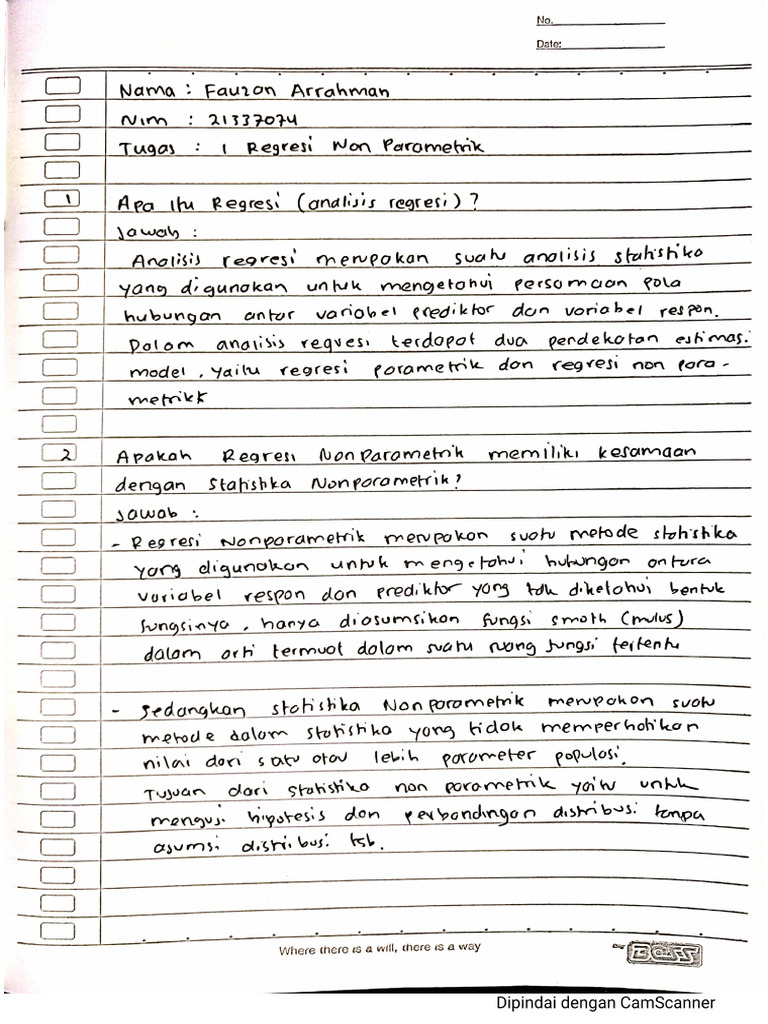 No.
Date:
Nama : Fauzan Arrahman
Nim : 21337074
Tugas : 1 Regresi Non Parametrik
1 Apa itu Regresi (analisis regresi) ?
Jawab :
Analisis regresi merupakan suatu analisis statistika
yang digunakan untuk mengetahui persamaan pola
hubungan antar variabel prediktor dan variabel respon.
Dalam analisis regresi terdapat dua pendekatan estimasi
model, yaitu regresi parametrik dan regresi non para-
metrik
2 Apakah Regresi Nonparametrik memiliki kesamaan
dengan Statistika Nonparametrik?
Jawab :
- Regresi Nonparametrik merupakan suatu metode statistika
yang digunakan untuk mengetahui hubungan antara
variabel respon dan prediktor yang tdk diketahui bentuk
fungsinya, hanya diasumsikan fungsi smoth (mulus)
dalam arti termuat dalam suatu ruang fungsi tertentu
- Sedangkan statistika Nonparametrik merupakan suatu
metode dalam statistika yang tidak memperhatikan
nilai dari satu atau lebih parameter populasi.
Tujuan dari statistika non parametrik yaitu untuk
menguji hipotesis dan perbandingan distribusi tanpa
asumsi distribusi tsb.
Where there is a will, there is a way
BOSS
Dipindai dengan CamScanner